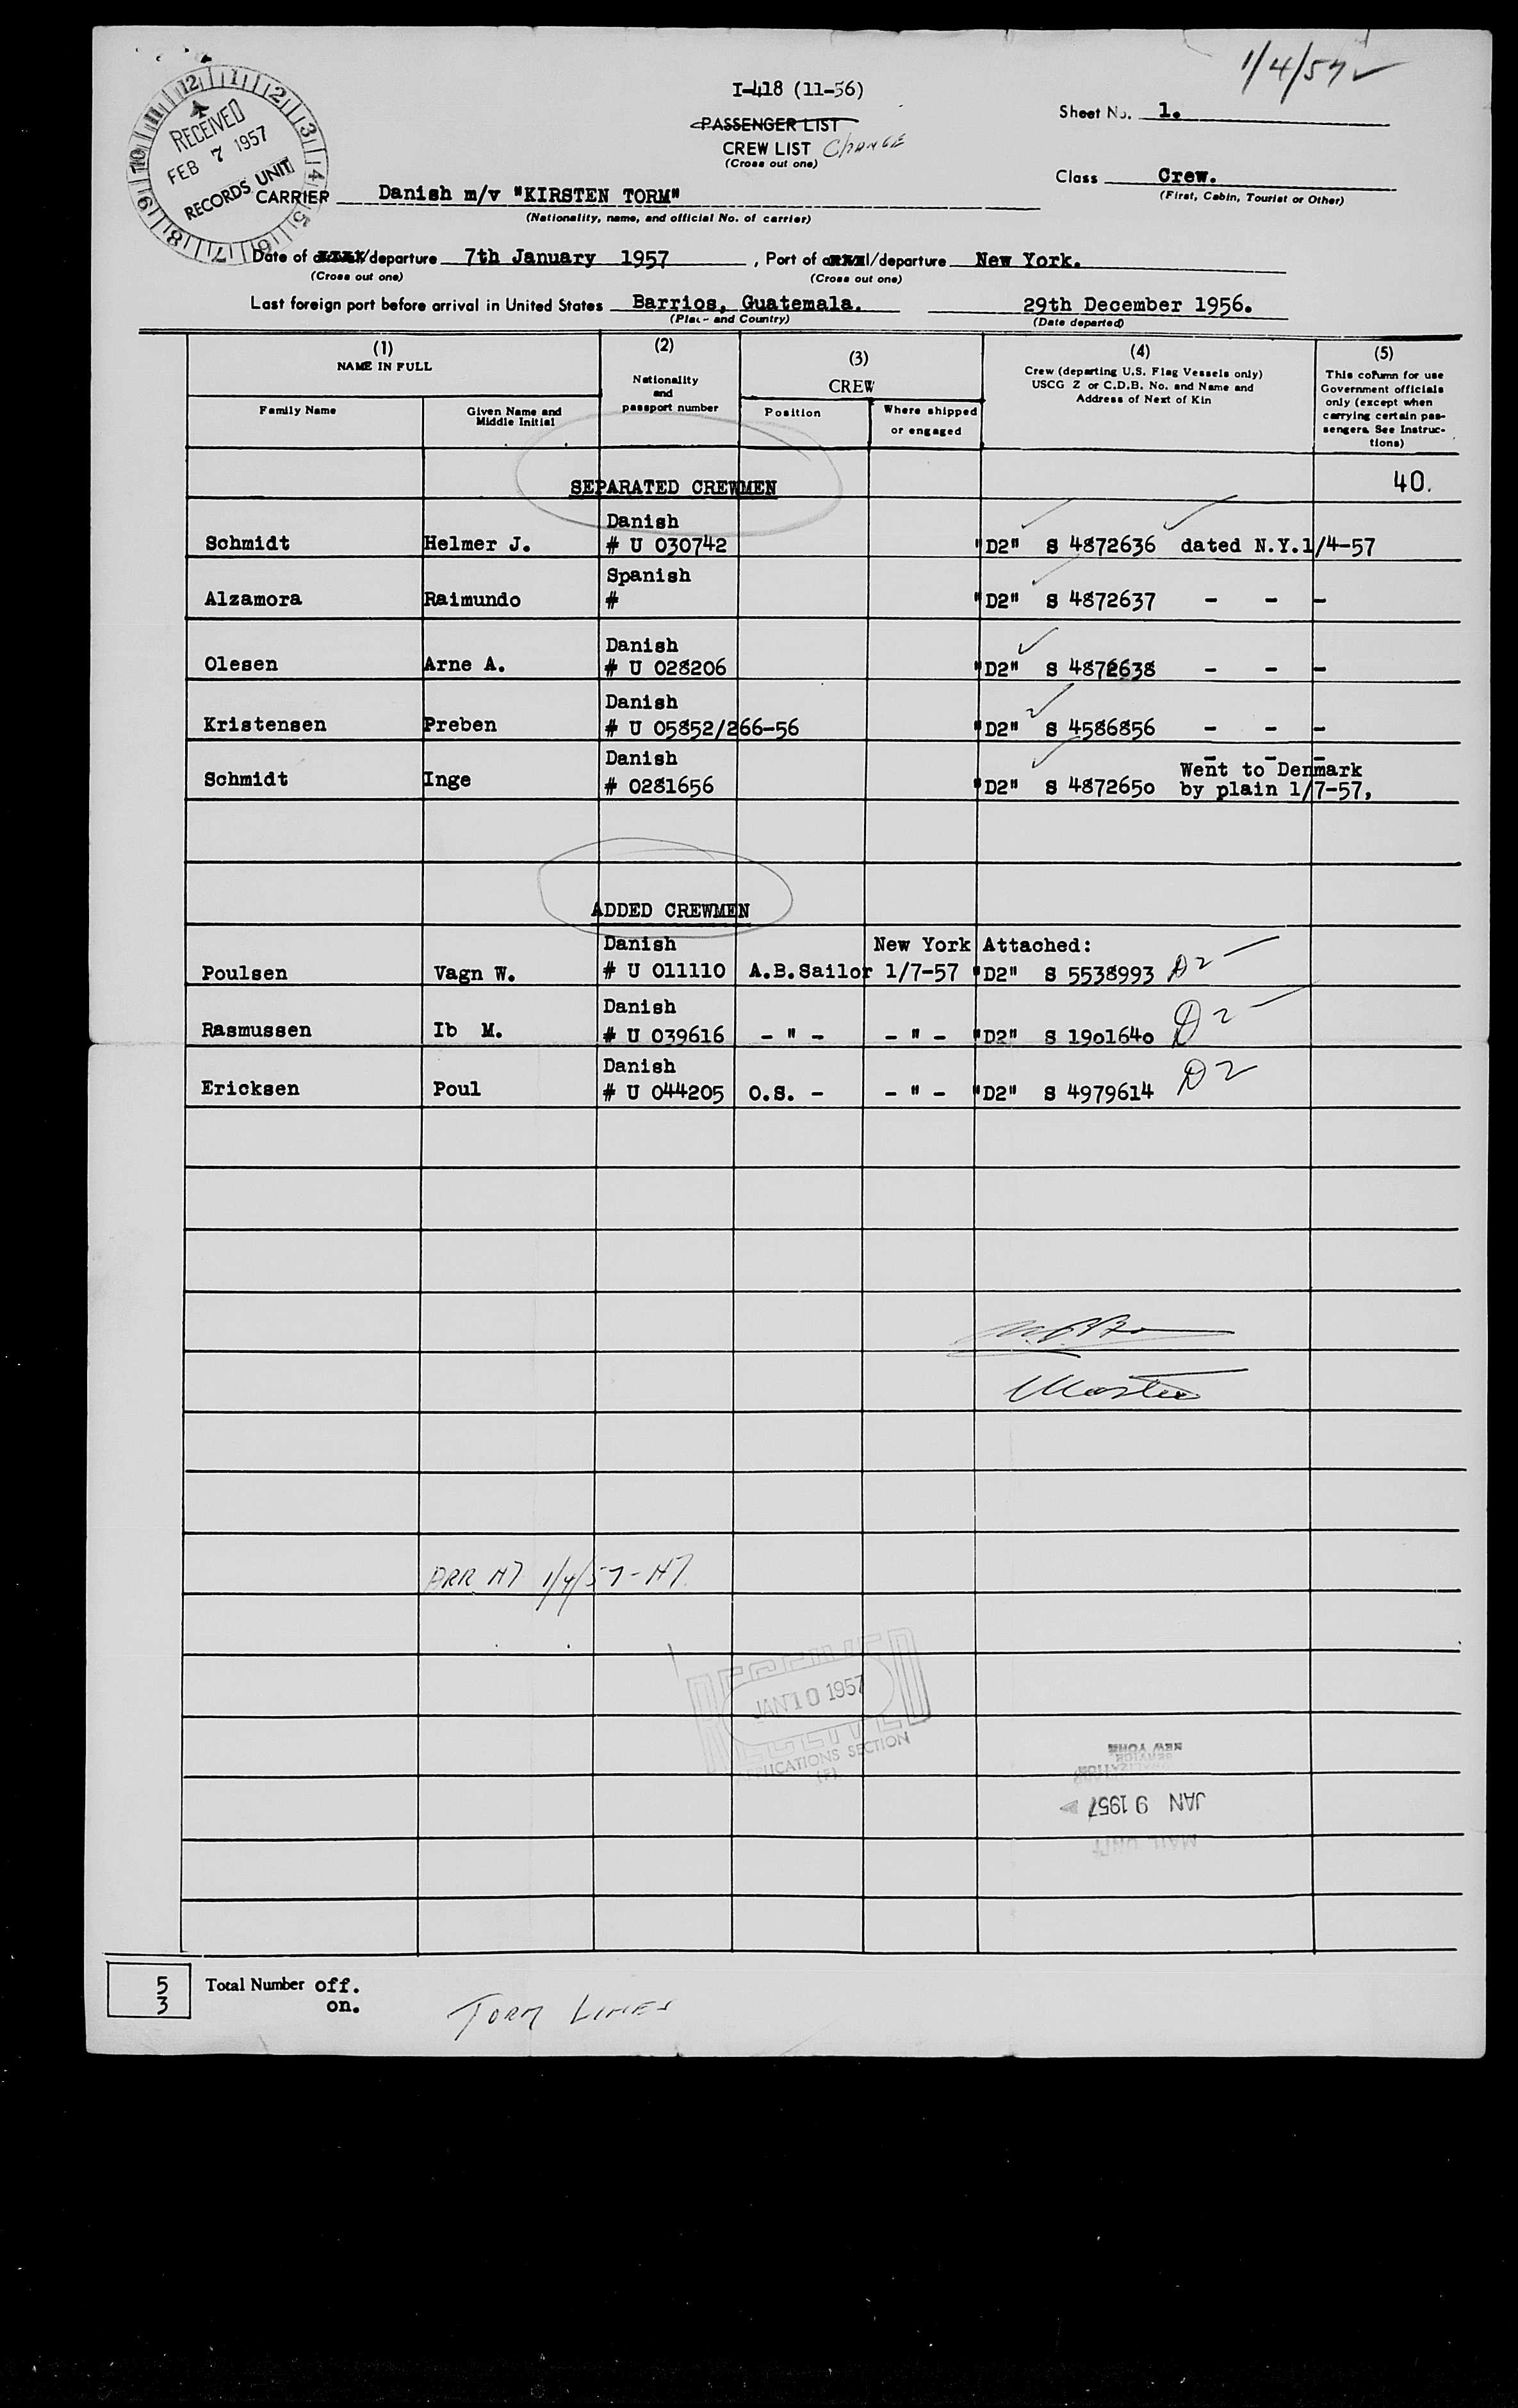 1/4/57
I-418 (11-56)
Sheet No. 1.
PASSENGER LIST
CREW LIST CHANGE
(Cross out one)
12 1 2 3 4 5 6 7 8 9 10 11
RECEIVED
FEB 7 1957
RECORDS UNIT
Class Crew.
(First, Cabin, Tourist or Other)
CARRIER Danish m/v "KIRSTEN TORM"
(Nationality, name, and official No. of carrier)
Date of /departure 7th January 1957, Port of /departure New York.
(Cross out one) (Cross out one)
Last foreign port before arrival in United States Barrios, Guatemala. 29th December 1956.
(Place and Country) (Date departed)
(1) NAME IN FULL
Family Name
Given Name and Middle Initial
(2) Nationality and passport number
(3) CREW
Position
Where shipped or engaged
(4) Crew (departing U.S. Flag Vessels only) USCG Z or C.D.B. No. and Name and Address of Next of Kin
(5) This column for use Government officials only (except when carrying certain passengers. See Instructions)
SEPARATED CREWMEN 40.
Danish
Schmidt Helmer J. # U 030742 "D2" S 4872636 dated N.Y.1/4-57
Spanish
Alzamora Raimundo # "D2" S 4872637 - - -
Danish
Olesen Arne A. # U 028206 "D2" S 4872638 - - -
Danish
Kristensen Preben # U 05852/266-56 "D2" S 4586856 - - -
Danish - - -
Schmidt Inge # 0281656 "D2" S 4872650 Went to Denmark
by plain 1/7-57,
ADDED CREWMEN
Danish New York Attached:
Poulsen Vagn W. # U 011110 A.B.Sailor 1/7-57 "D2" S 5538993 D2
Danish
Rasmussen Ib M. # U 039616 - " - - " - "D2" S 1901640 D2
Danish
Ericksen Poul # U 044205 O.S. - - " - "D2" S 4979614 D2
Master
ARR NY 1/4/57-NY.
RECEIVED
JAN 10 1957
APPLICATIONS SECTION
(F)
NEW YORK
SERVICE
JAN 9 1957
MAIL UNIT
5 Total Number off.
3 on.
TORM LINES